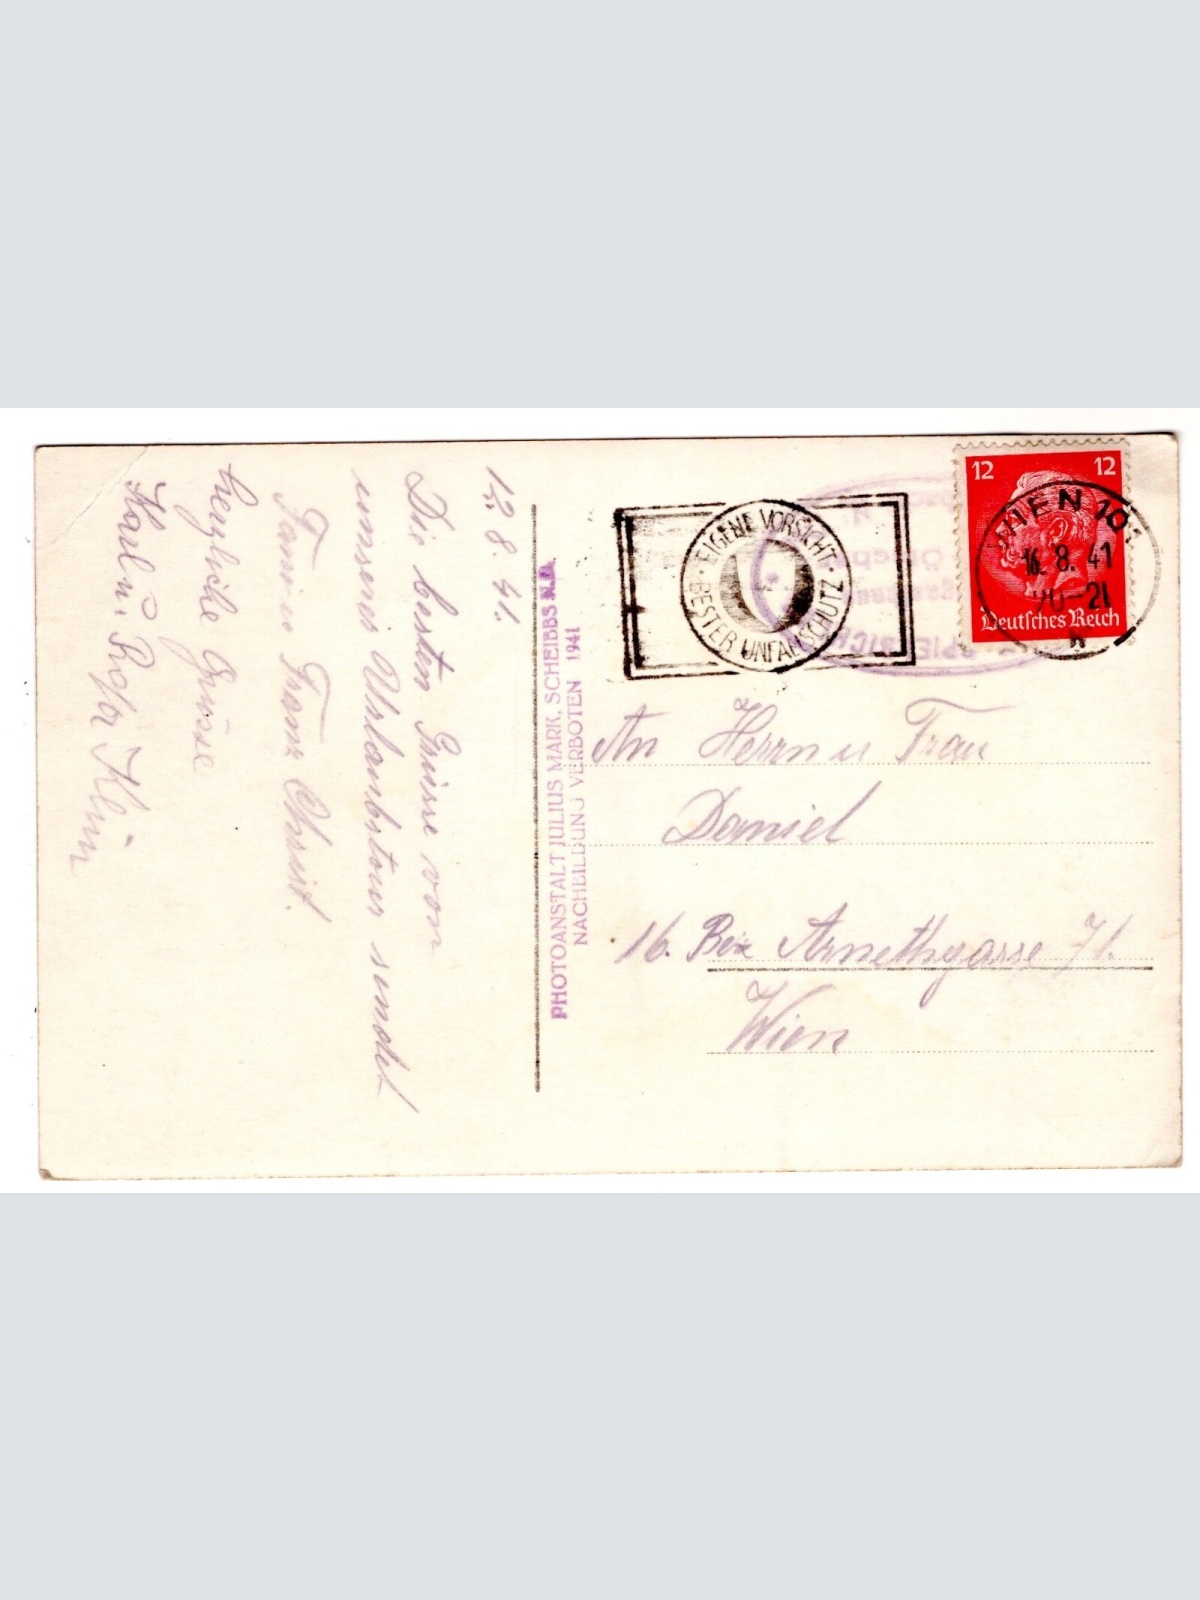 12.8.41.
Die besten Grüsse von
unserer Urlaubstour sendet
Franz Christ.
herzliche Grüsse
Karl u.
PHOTOANSTALT JULIUS MARK, SCHEIBBS N.D.
NACHBILDUNG VERBOTEN 1941
EIGENE VORSICHT
BESTER UNFALLSCHUTZ
12 12
Deutsches Reich
WIEN 101
16. 8. 41
20-21
An Herrn u Frau
Daniel
16. Bez Arnethgasse 71.
Wien